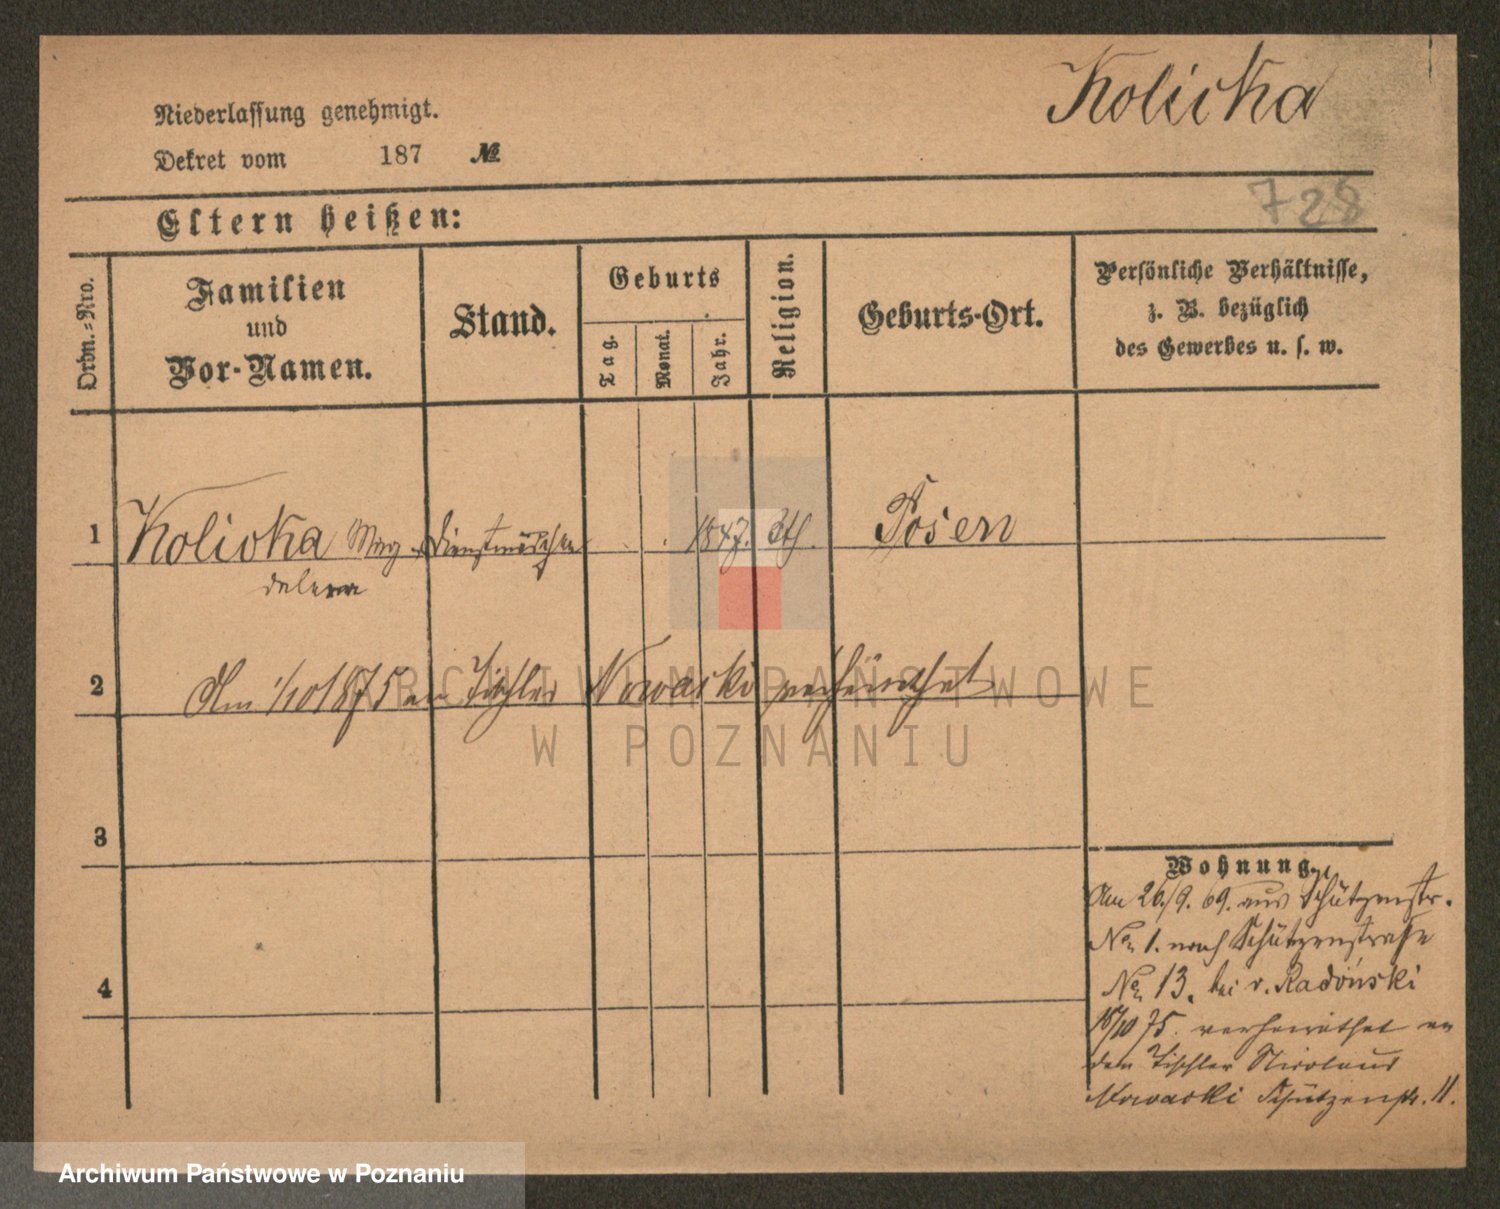 Kolicka
Niederlassung genehmigt.
Dekret vom 187 №
728
Eltern heißen:
Ordn.-Nro.
Familien
und
Vor-Namen.
Stand.
Geburts
Tag.
Monat.
Jahr.
Religion.
Geburts-Ort.
Persönliche Verhältnisse,
z. B. bezüglich
des Gewerbes u. s. w.
1 Kolicka Mag- Dienstmädchen 1847. kth. Posen
dalena
2 Am 1/10 1875 an Tischler Nowacki verheirathet
3
4
Wohnung.
Am 26/9. 69. aus Schützenstr.
No 1. nach Schützenstraße
No 13. bei v. Radoński
10 75. verheirathet an
den Tischler Nicolaus
Nowacki Schützenstr. 11.
ARCHIWUM PAŃSTWOWE
W POZNANIU
Archiwum Państwowe w Poznaniu